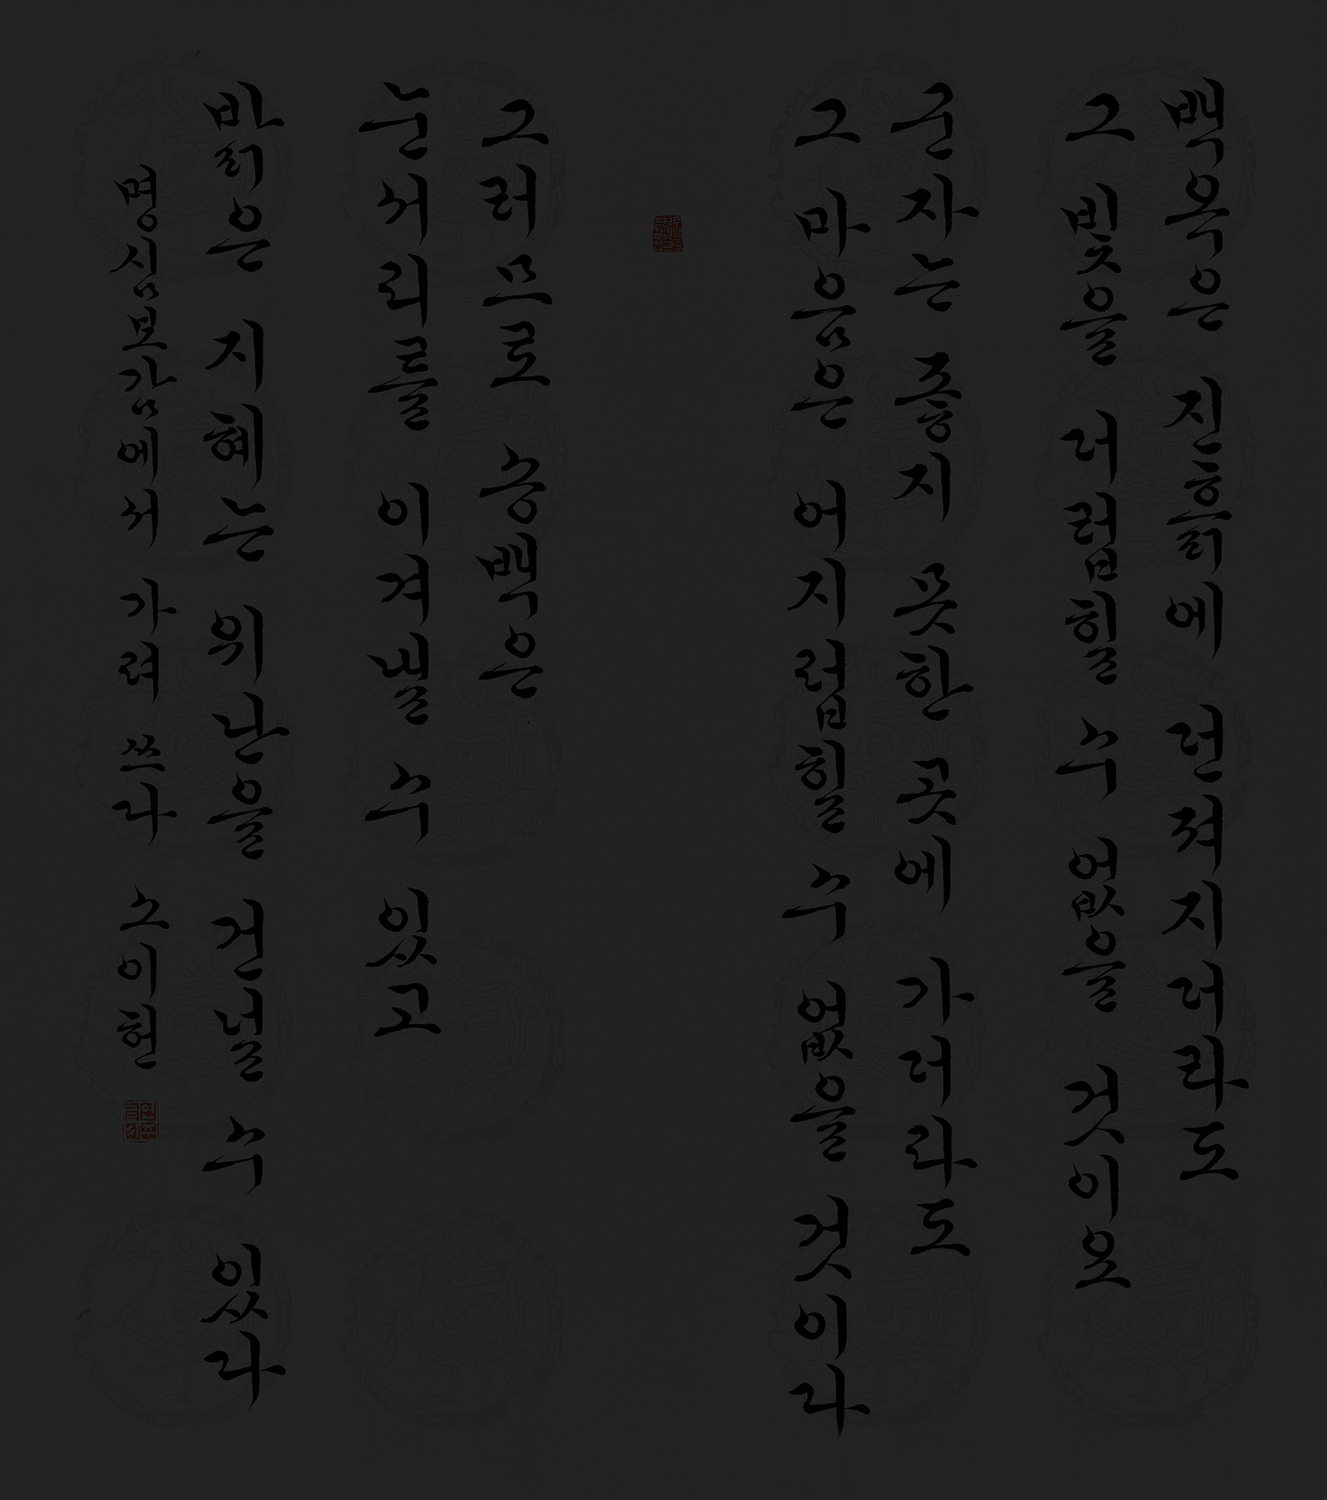 백옥은 진흙에 던져지더라도
그 빛을 더럽힐 수 없을 것이오
군자는 좋지 못한 곳에 가더라도
그 마음은 어지럽힐 수 없을 것이라
그러므로 송백은
눈서리를 이겨낼 수 있고
밝은 지혜는 위난을 건널 수 있다
명심보감에서 가려 쓰다 소이현